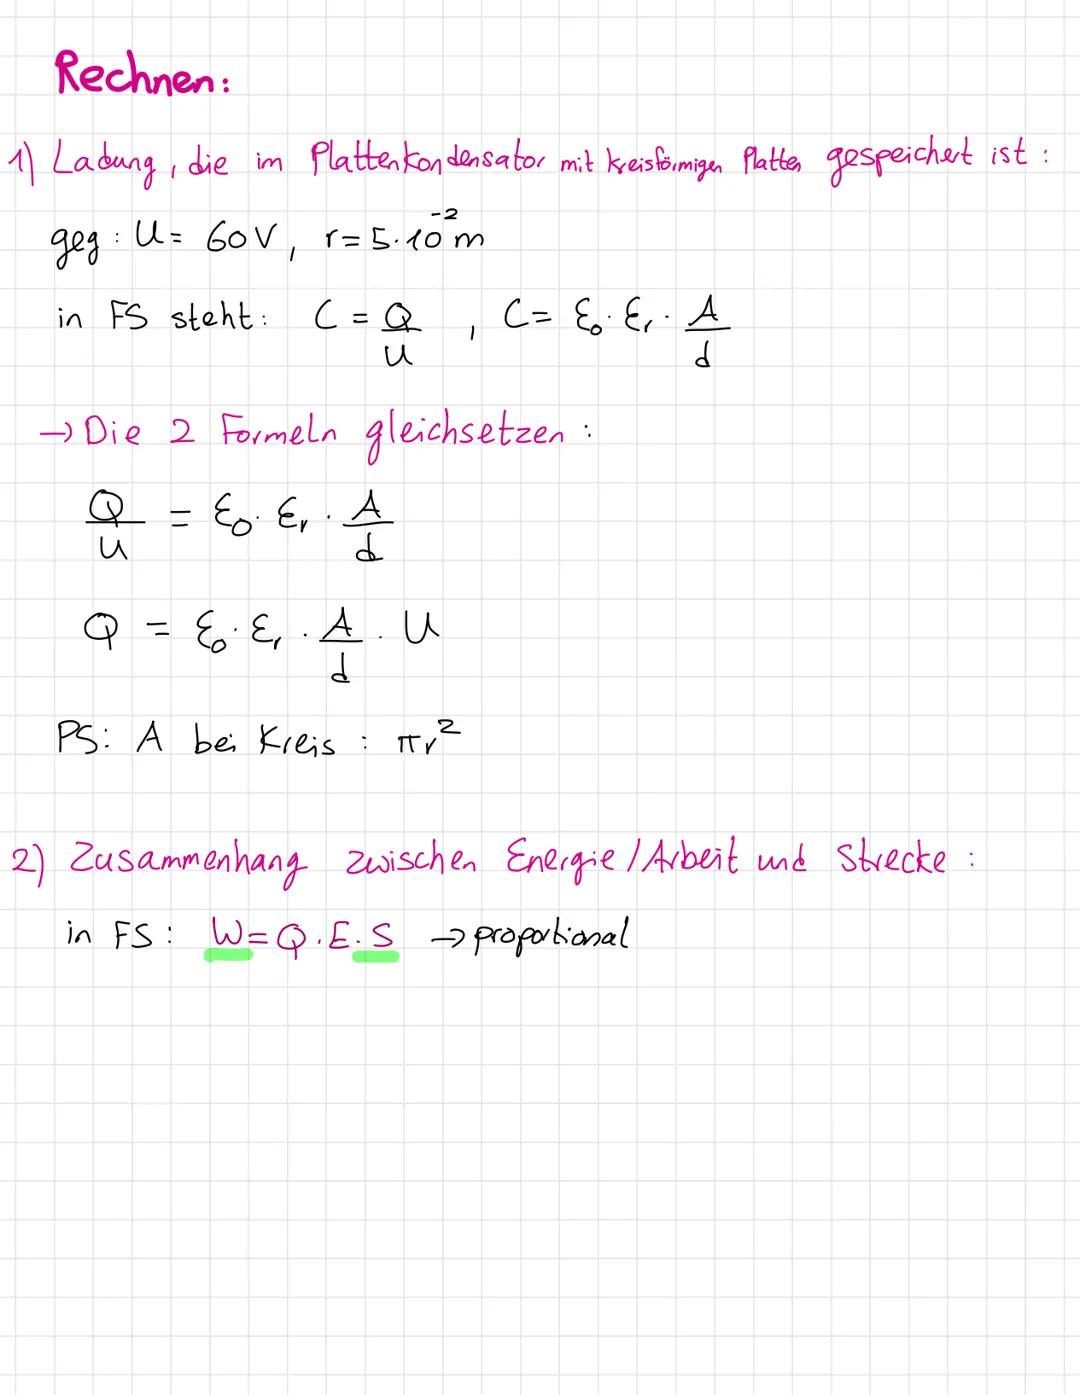 Rechnen:
1) Ladung, die im Plattenkondensator mit kreisförmigen Platten gespeichert ist:
geg: U= 60V, r=5·10⁻²m
in FS steht: C = Q/U , C= ε₀·εᵣ· A/d
→ Die 2 Formeln gleichsetzen:
Q/U = ε₀·εᵣ· A/d
Q = ε₀·εᵣ· A/d · U
PS: A bei Kreis: πr²
2) Zusammenhang zwischen Energie/Arbeit und Strecke:
in FS: W=Q·E·S → proportional